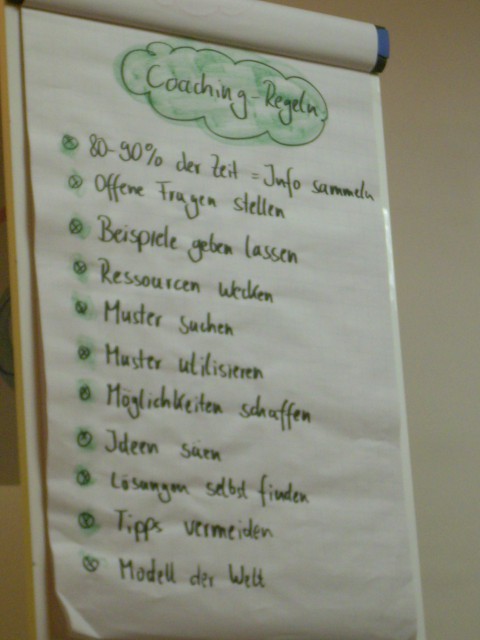 Coaching-Regeln
80-90% der Zeit = Info sammeln
Offene Fragen stellen
Beispiele geben lassen
Ressourcen wecken
Muster suchen
Muster utilisieren
Möglichkeiten schaffen
Ideen säen
Lösungen selbst finden
Tipps vermeiden
Modell der Welt